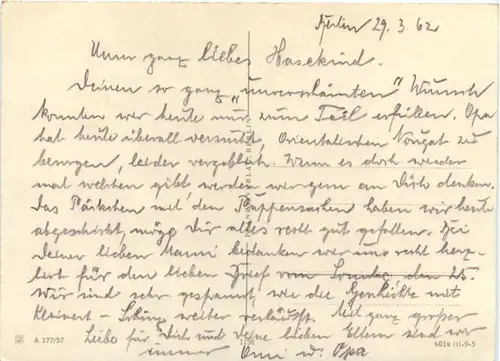 Berlin 29.3.62
Unser ganz liebes Hasekind.
Deinen so ganz "unverschämten" Wunsch
konnten wir heute nur zum Teil erfüllen. Opa
hat heute überall versucht, Orientalischen Nougat zu
besorgen, leider vergeblich. Wenn es doch wieder
mal welchen gibt werden wir gern an Dich denken.
Das Päckchen mit den Puppensachen haben wir heute
abgeschickt, mögg Dir alles recht gut gefallen. Bei
Deiner lieben Mami bedanken wir uns recht herz-
lichst für den lieben Brief vom Sonntag den 25.
Wir sind sehr gespannt, wie die Geschichte mit
weiter verläuft. Mit ganz großer
Liebe für Dich und Deine lieben Eltern sind wir
immer Omi u. Opa
A 177/57